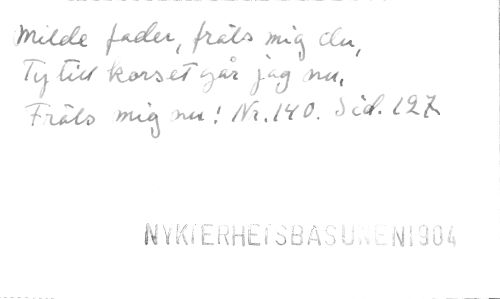 Milde fader, fräls mig du,
Ty till korset går jag nu,
Fräls mig nu! Nr. 140. Sid. 127
NYKTERHETSBASUNEN 1904